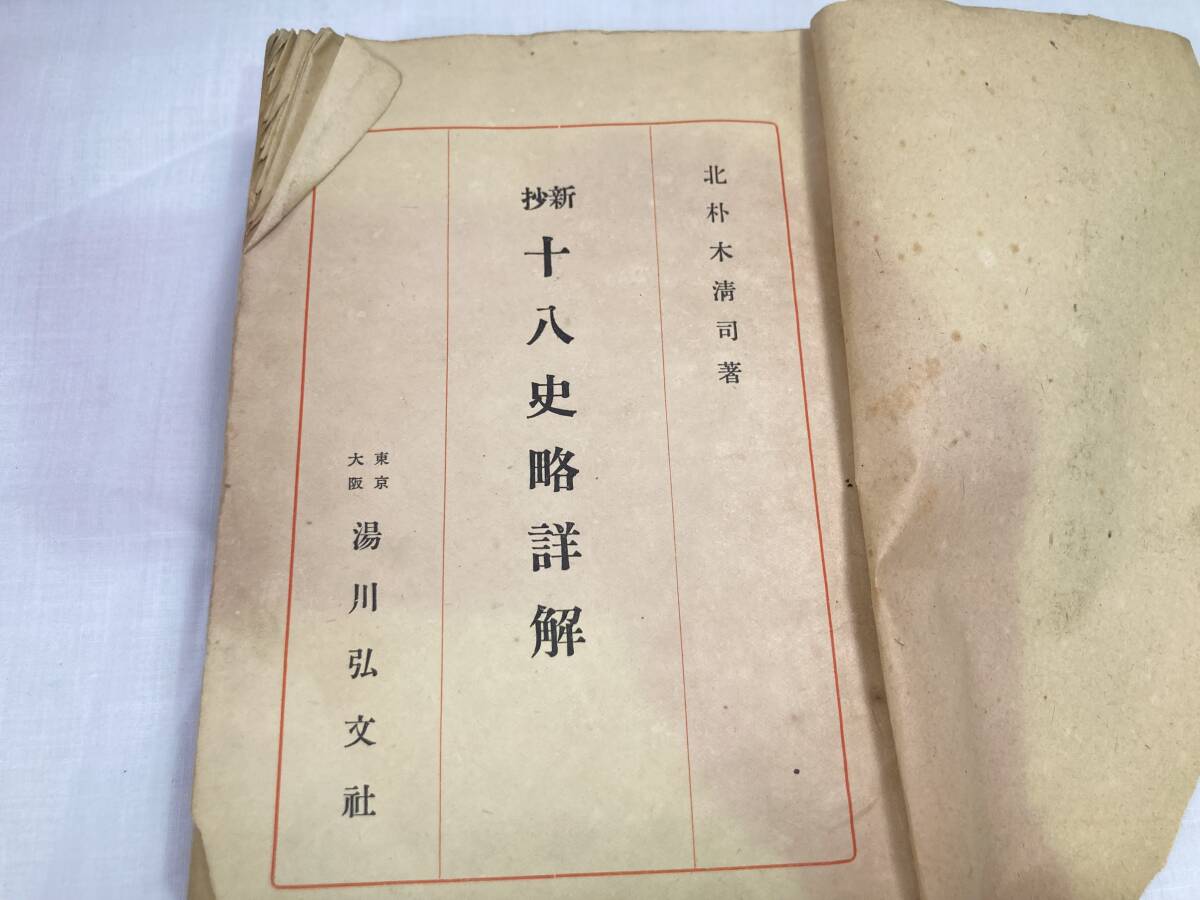 北朴木清司著
新抄
十八史略詳解
東京
大阪
湯川弘文社